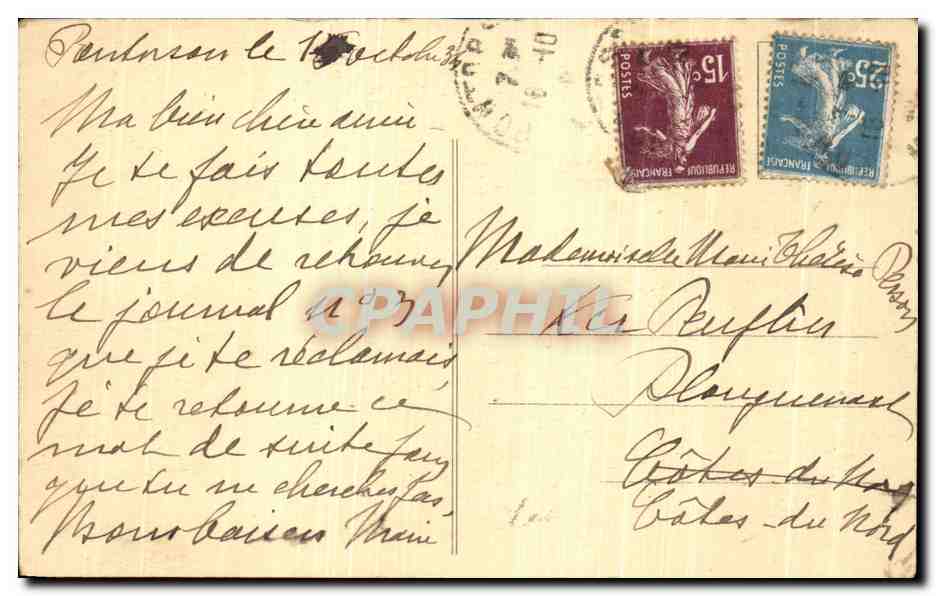 Pontorson le 15 octobre 3
Ma bien chère amie
Je te fais toutes
mes excuses, je
viens de retrouver
le journal n° 3
que je te réclamais,
Je te retourne ce
mot de suite pour
que tu ne cherches pas
Bons baisers Marie
15c
POSTES
REPUBLIQUE FRANÇAISE
25c
POSTES
REPUBLIQUE FRANÇAISE
7
10
Mademoiselle Marie Thérèse
Ker
Plouguenast
Côtes du Nord
Côtes-du Nord
CPAPHIL